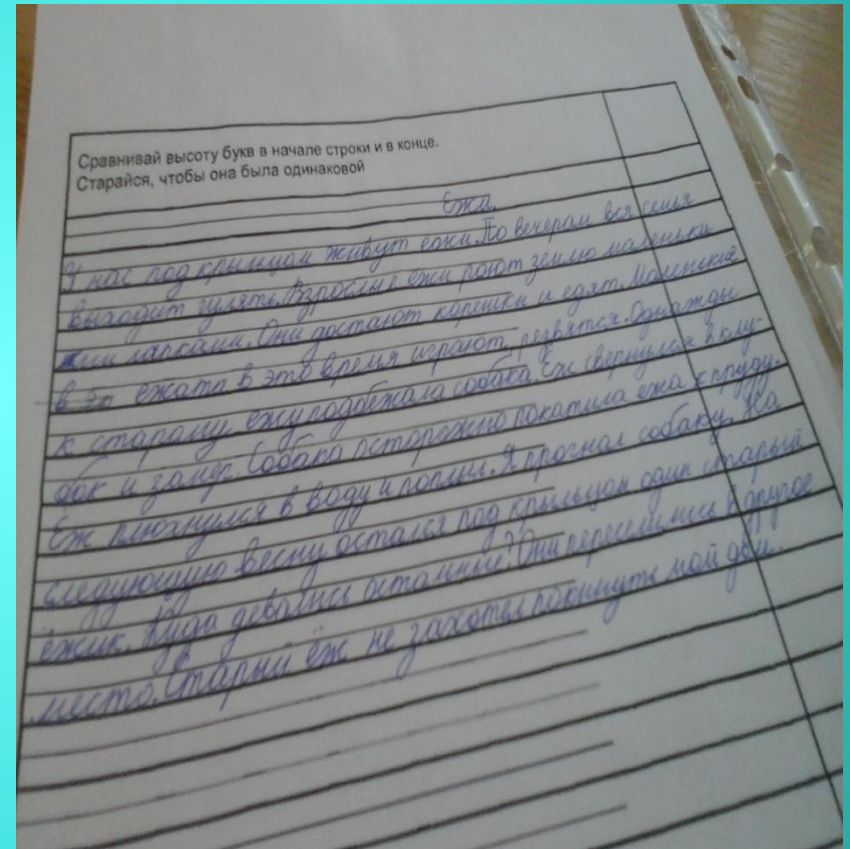 Сравнивай высоту букв в начале строки и в конце.
Старайся, чтобы она была одинаковой
Ежи.
У нас под крыльцом живут ежи. По вечерам вся семья
выходит гулять. Взрослые ежи роют землю маленьки
ми лапками. Они достают корешки и едят. Маленькие
в эт ежата в это время играют, резвятся. Однажды
к старому ежу подбежала собака. Ёж свернулся в клу-
бок и замер. Собака осторожно покатила ежа к пруду.
Ёж плюхнулся в воду и поплыл. Я прогнал собаку. На
следующую весну остался под крыльцом один старый
ёжик. Куда девались остальные? Они переселились в другое
место. Старый ёж не захотел покинуть мой дом.